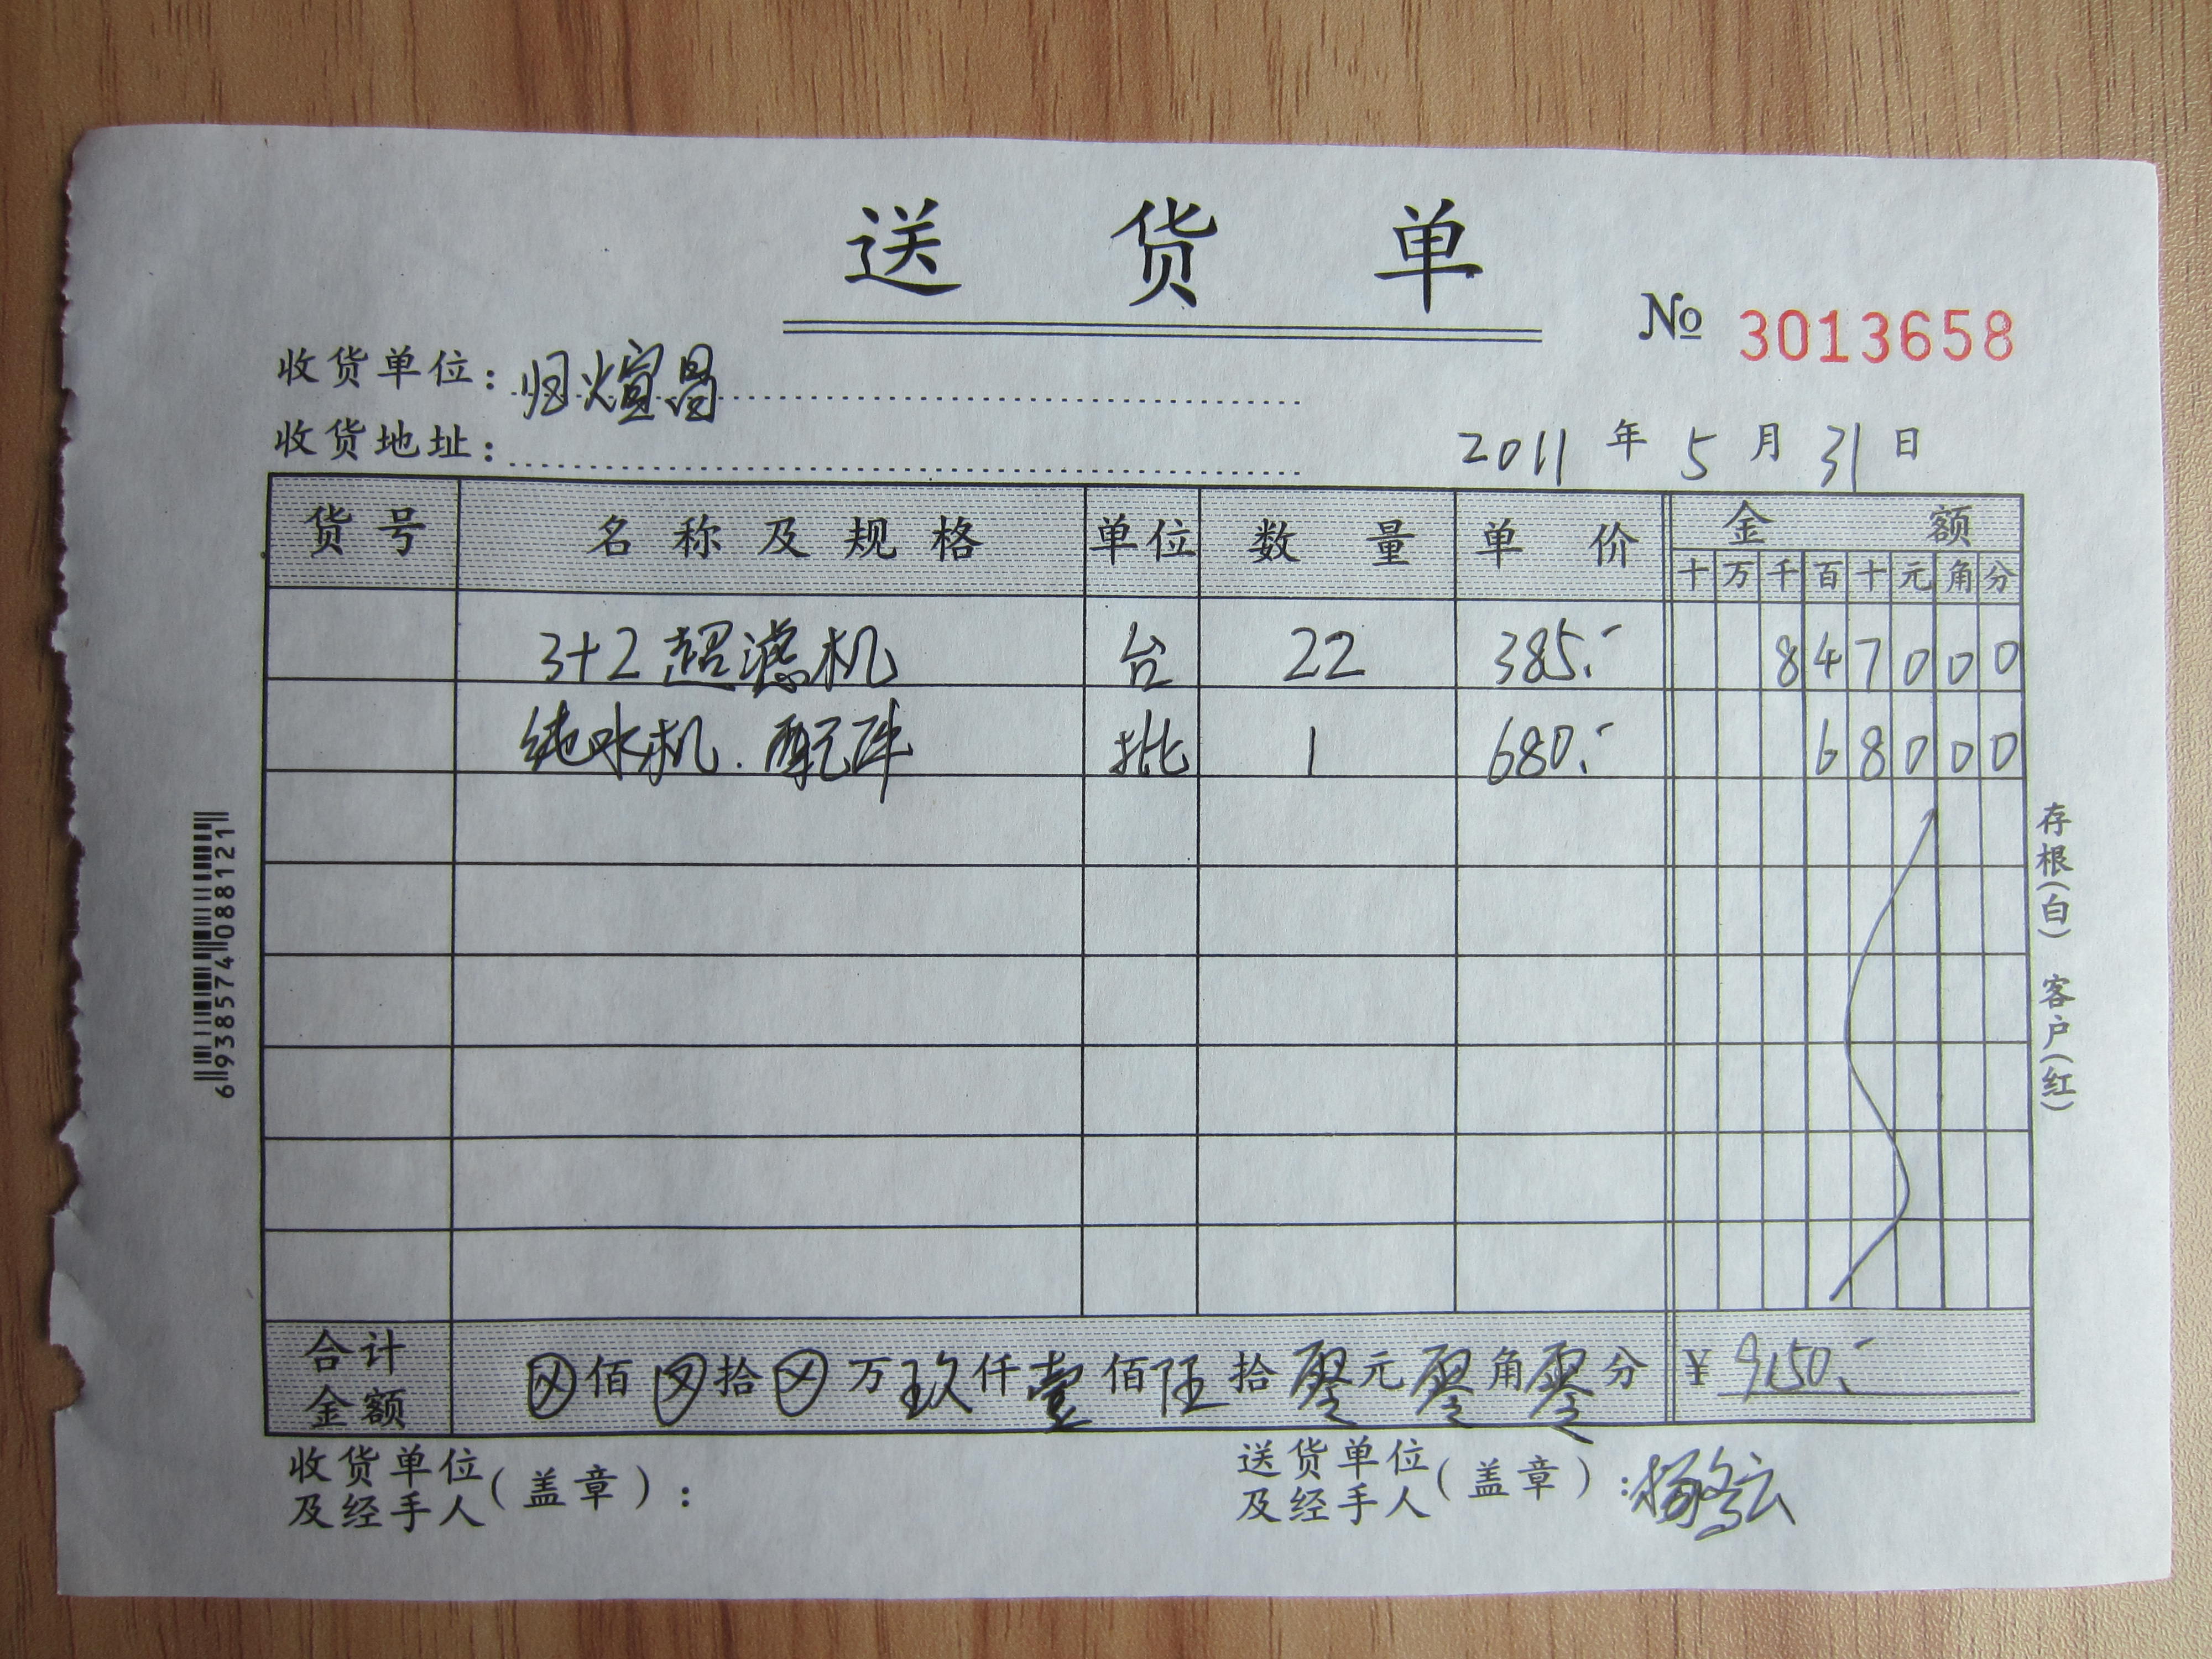 送货单
№ 3013658
收货单位: 煊昌
收货地址:
2011年5月31日
货号 名称及规格 单位 数量 单价 金额
十 万 千 百 十 元 角 分
3+2超滤机 台 22 385.- 8 4 7 0 0 0
纯水机.配件 批 1 680.- 6 8 0 0 0
存根(白) 客户(红)
6 938574 088121
合计金额 ⊗佰⊗拾⊗万玖仟壹佰伍拾零元零角零分 ¥9150.-
收货单位及经手人(盖章):
送货单位及经手人(盖章):